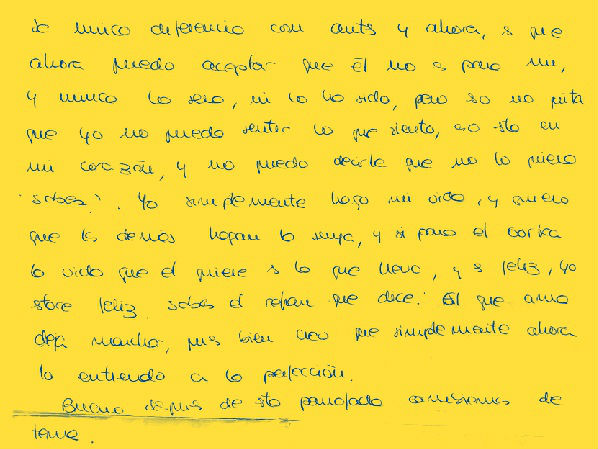 la única diferencia con antes y ahora, es que
ahora puedo aceptar que él no es para mi,
y nunca lo sera, ni lo ha sido, pero eso no quita
que yo no puedo sentir lo que siento, eso sta en
mi corazón, y no puedo decirle que no lo quiera
sabes?. Yo simplemente hago mi vida, y quiero
que los demás hagan la suya, y si para el
la vida que el quiere es la que lleva, y es feliz, yo
stare feliz. sabes el refran que dice: El que ama
deja marcha, pues bien creo que simplemente ahora
lo entiendo a la perfección.
Bueno despues de sta parrafada cambiamos de
tema.